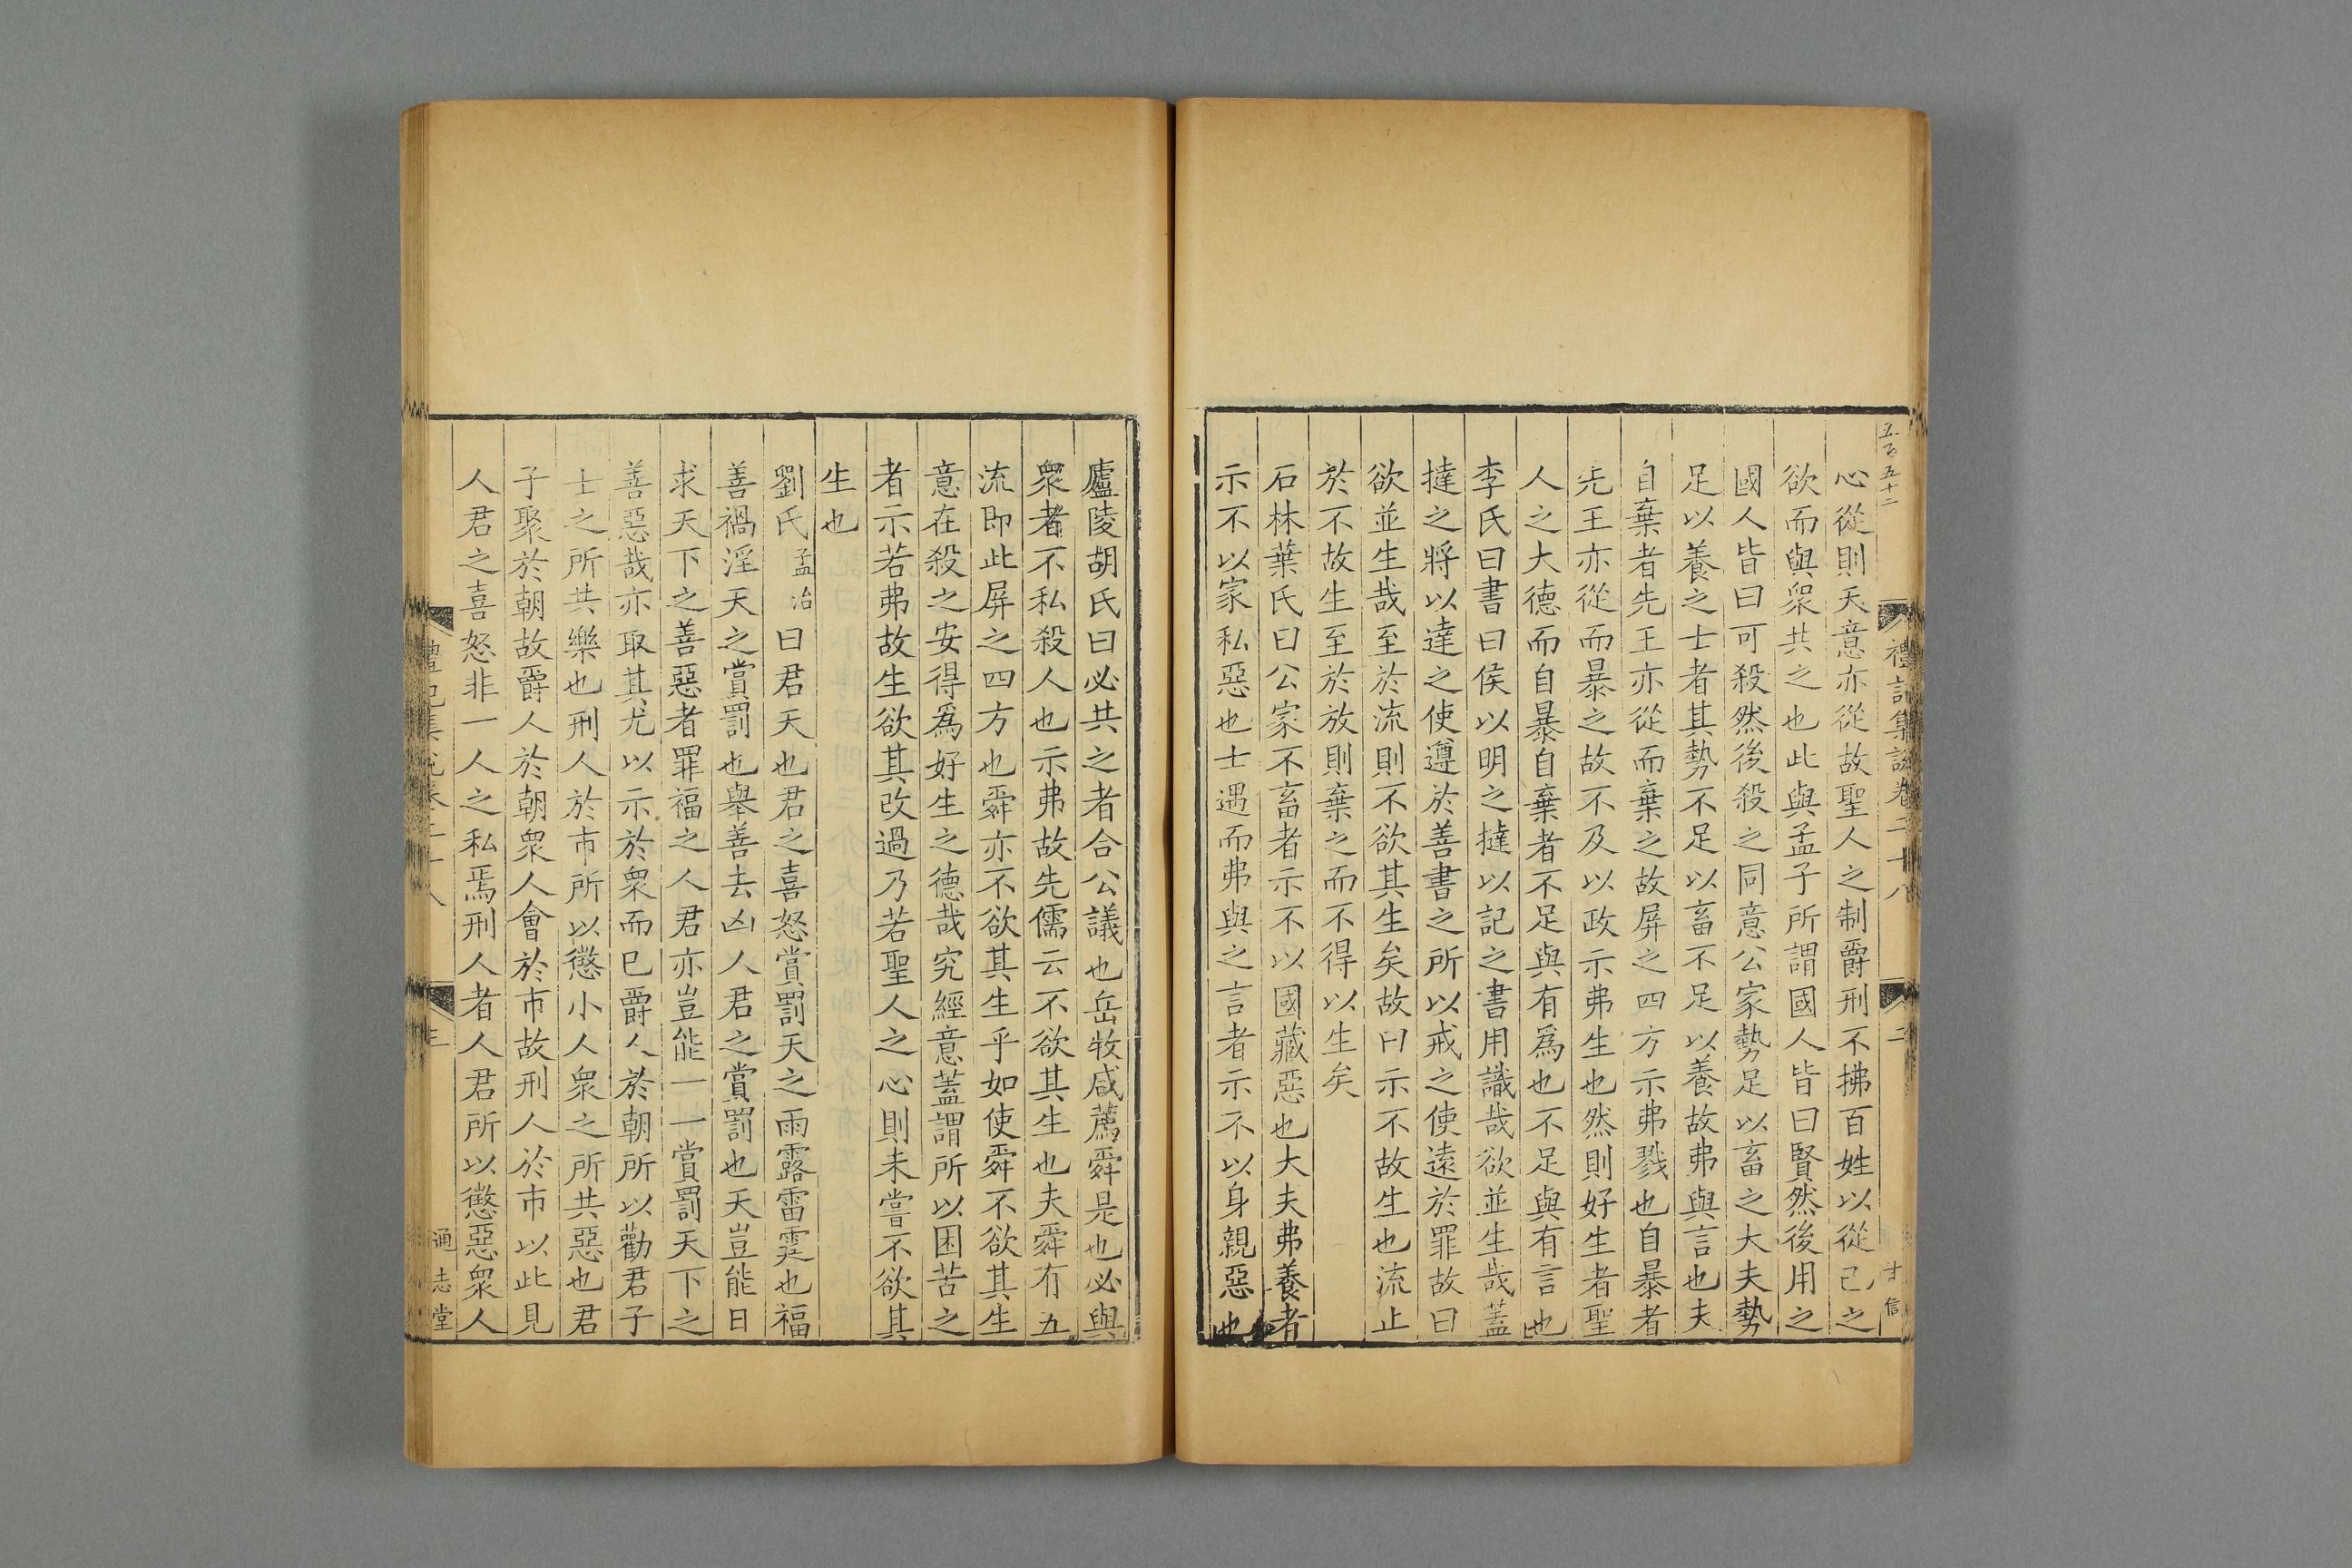 五百五十二
禮記集說卷二十八
二
甘信
心從則天意亦從故聖人之制爵刑不拂百姓以從己之
欲而與衆共之也此與孟子所謂國人皆曰賢然後用之
國人皆曰可殺然後殺之同意公家勢足以畜之大夫勢
足以養之士者其勢不足以畜不足以養故弗與言也夫
自棄者先王亦從而棄之故屏之四方示弗戮也自暴者
先王亦從而暴之故不及以政示弗生也然則好生者聖
人之大德而自暴自棄者不足與有為也不足與有言也
李氏曰書曰侯以明之撻以記之書用識哉欲並生哉蓋
撻之將以達之使遵於善書之所以戒之使遠於罪故曰
欲並生哉至於流則不欲其生矣故曰示不故生也流止
於不故生至於放則棄之而不得以生矣
石林葉氏曰公家不畜者示不以國藏惡也大夫弗養者
示不以家私惡也士遇而弗與之言者示不以身親惡也
廬陵胡氏曰必共之者合公議也岳牧咸薦舜是也必與
衆者不私殺人也示弗故先儒云不欲其生也夫舜有五
流即此屏之四方也舜亦不欲其生乎如使舜不欲其生
意在殺之安得爲好生之德哉究經意蓋謂所以困苦之
者示若弗故生欲其改過乃若聖人之心則未嘗不欲其
生也
劉氏孟冶曰君天也君之喜怒賞罰天之雨露雷霆也福
善禍淫天之賞罰也舉善去凶人君之賞罰也天豈能日
求天下之善惡者罪福之人君亦豈能一一賞罰天下之
善惡哉亦取其尤以示於衆而已爵人於朝所以勸君子
士之所共樂也刑人於市所以懲小人衆之所共惡也君
子聚於朝故爵人於朝衆人會於市故刑人於市以此見
人君之喜怒非一人之私焉刑人者人君所以懲惡衆人
禮記集說卷二十八
三
通志堂